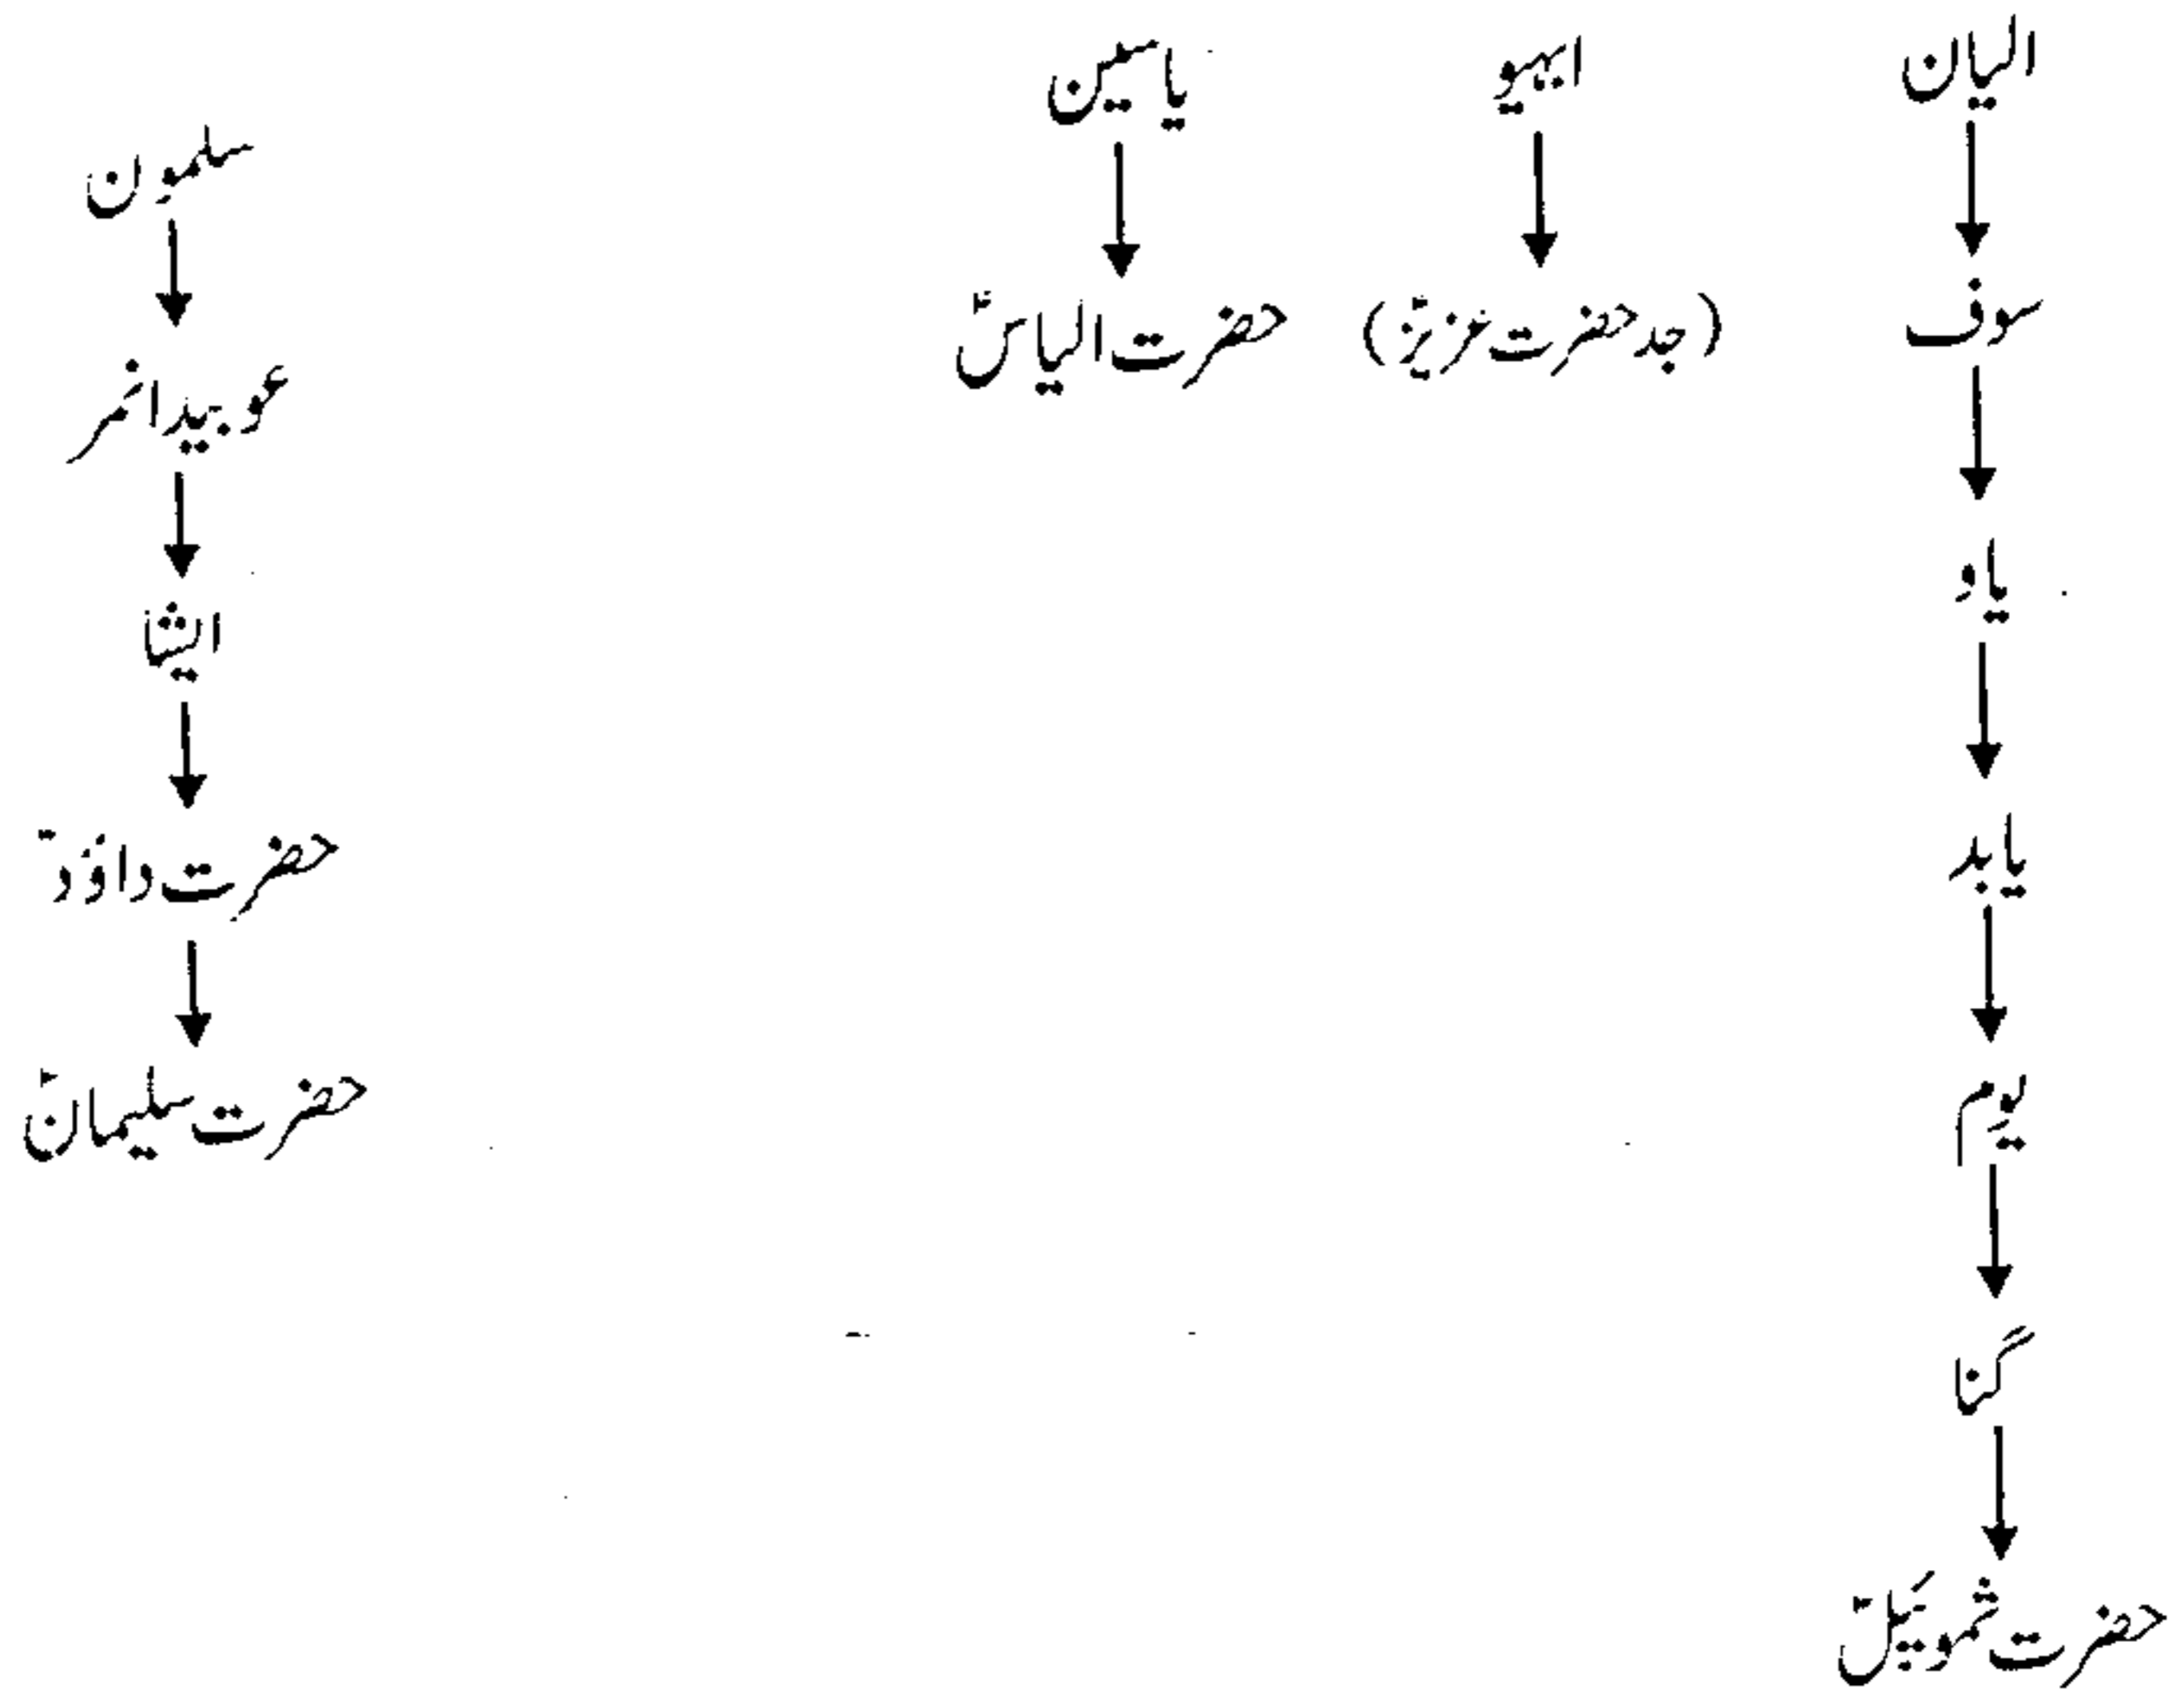 الیان
سوف
یاو
یابد
یوم
گنا
حضرت شموئیلؑ
ابیہیو
(جد حضرت عزیرؑ)
یاسین
حضرت الیاسؑ
سلمیون
عوبید
ایشا
حضرت داؤدؑ
حضرت سلیمانؑ